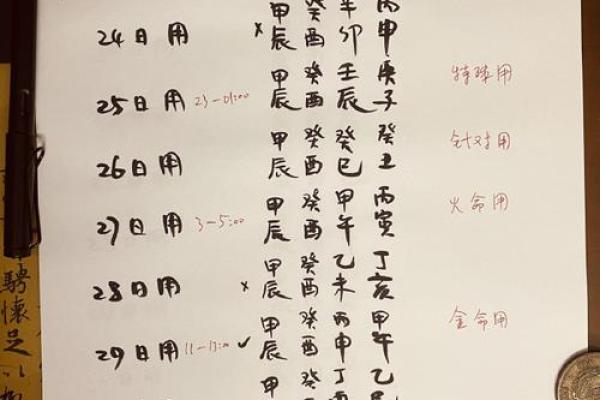 甲 癸 辛 丙
24日用 × 辰 酉 卯 申
甲 癸 壬 庚 特殊用
25日用 23-01:00 辰 酉 辰 子
甲 癸 癸 癸 针对用
26日用 辰 酉 巳 丑
甲 癸 甲 丙 火命用
27日用 3-5:00 辰 酉 午 寅
甲 癸 乙 丁
28日用 × 辰 酉 未 亥
甲 癸 丙 甲 金命用
29日用 11-13:00 ✓ 辰 酉 申 午
甲 癸 丁 乙
騁
懷
足
以